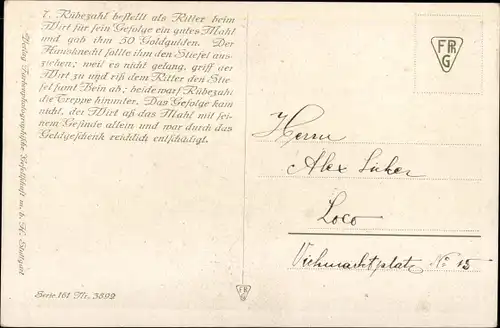 7. Rübezahl bestellt als Ritter beim
Wirt für sein Gefolge ein gutes Mahl
und gab ihm 50 Goldgulden. Der
Hausknecht sollte ihm den Stiefel aus-
ziehen; weil es nicht gelang, griff der
Wirt zu und riß dem Ritter den Stie-
fel samt Bein ab; beide warf Rübezahl
die Treppe hinunter. Das Gefolge kam
nicht, der Wirt aß das Mahl mit sei-
nem Gesinde allein und war durch das
Geldgeschenk reichlich entschädigt.
Verlag Farbenphotographische Gesellschaft m. b. H. Stuttgart
Serie 161 Nr. 3899
FPR
G
FPR
G
Herrn
Alex
Loco
Viehmarktplatz No 15